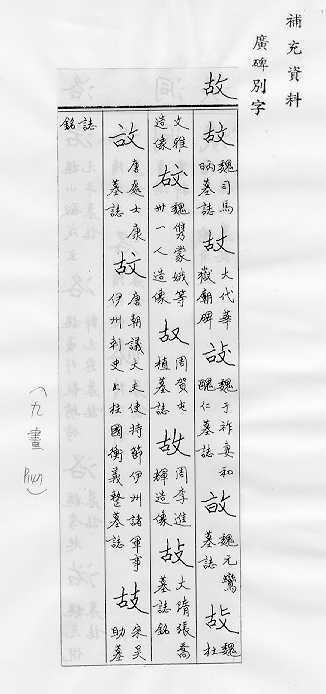 補充資料
廣碑別字
故
故 魏司馬昞墓誌 故 大代華嶽廟碑 故 魏于祚妻和醜仁墓誌 故 魏元鸞墓誌 故 魏杜
文雅造像 故 魏儁蒙娥等卅一人造像 故 周賀屯植墓誌 故 周李進輝造像 故 大隋張喬墓誌銘
故 唐處士康墓誌 故 唐朝議大夫使持節伊州諸軍事伊州刺史上柱國衡義整墓誌 故 宋吳助墓
誌銘
(九畫)